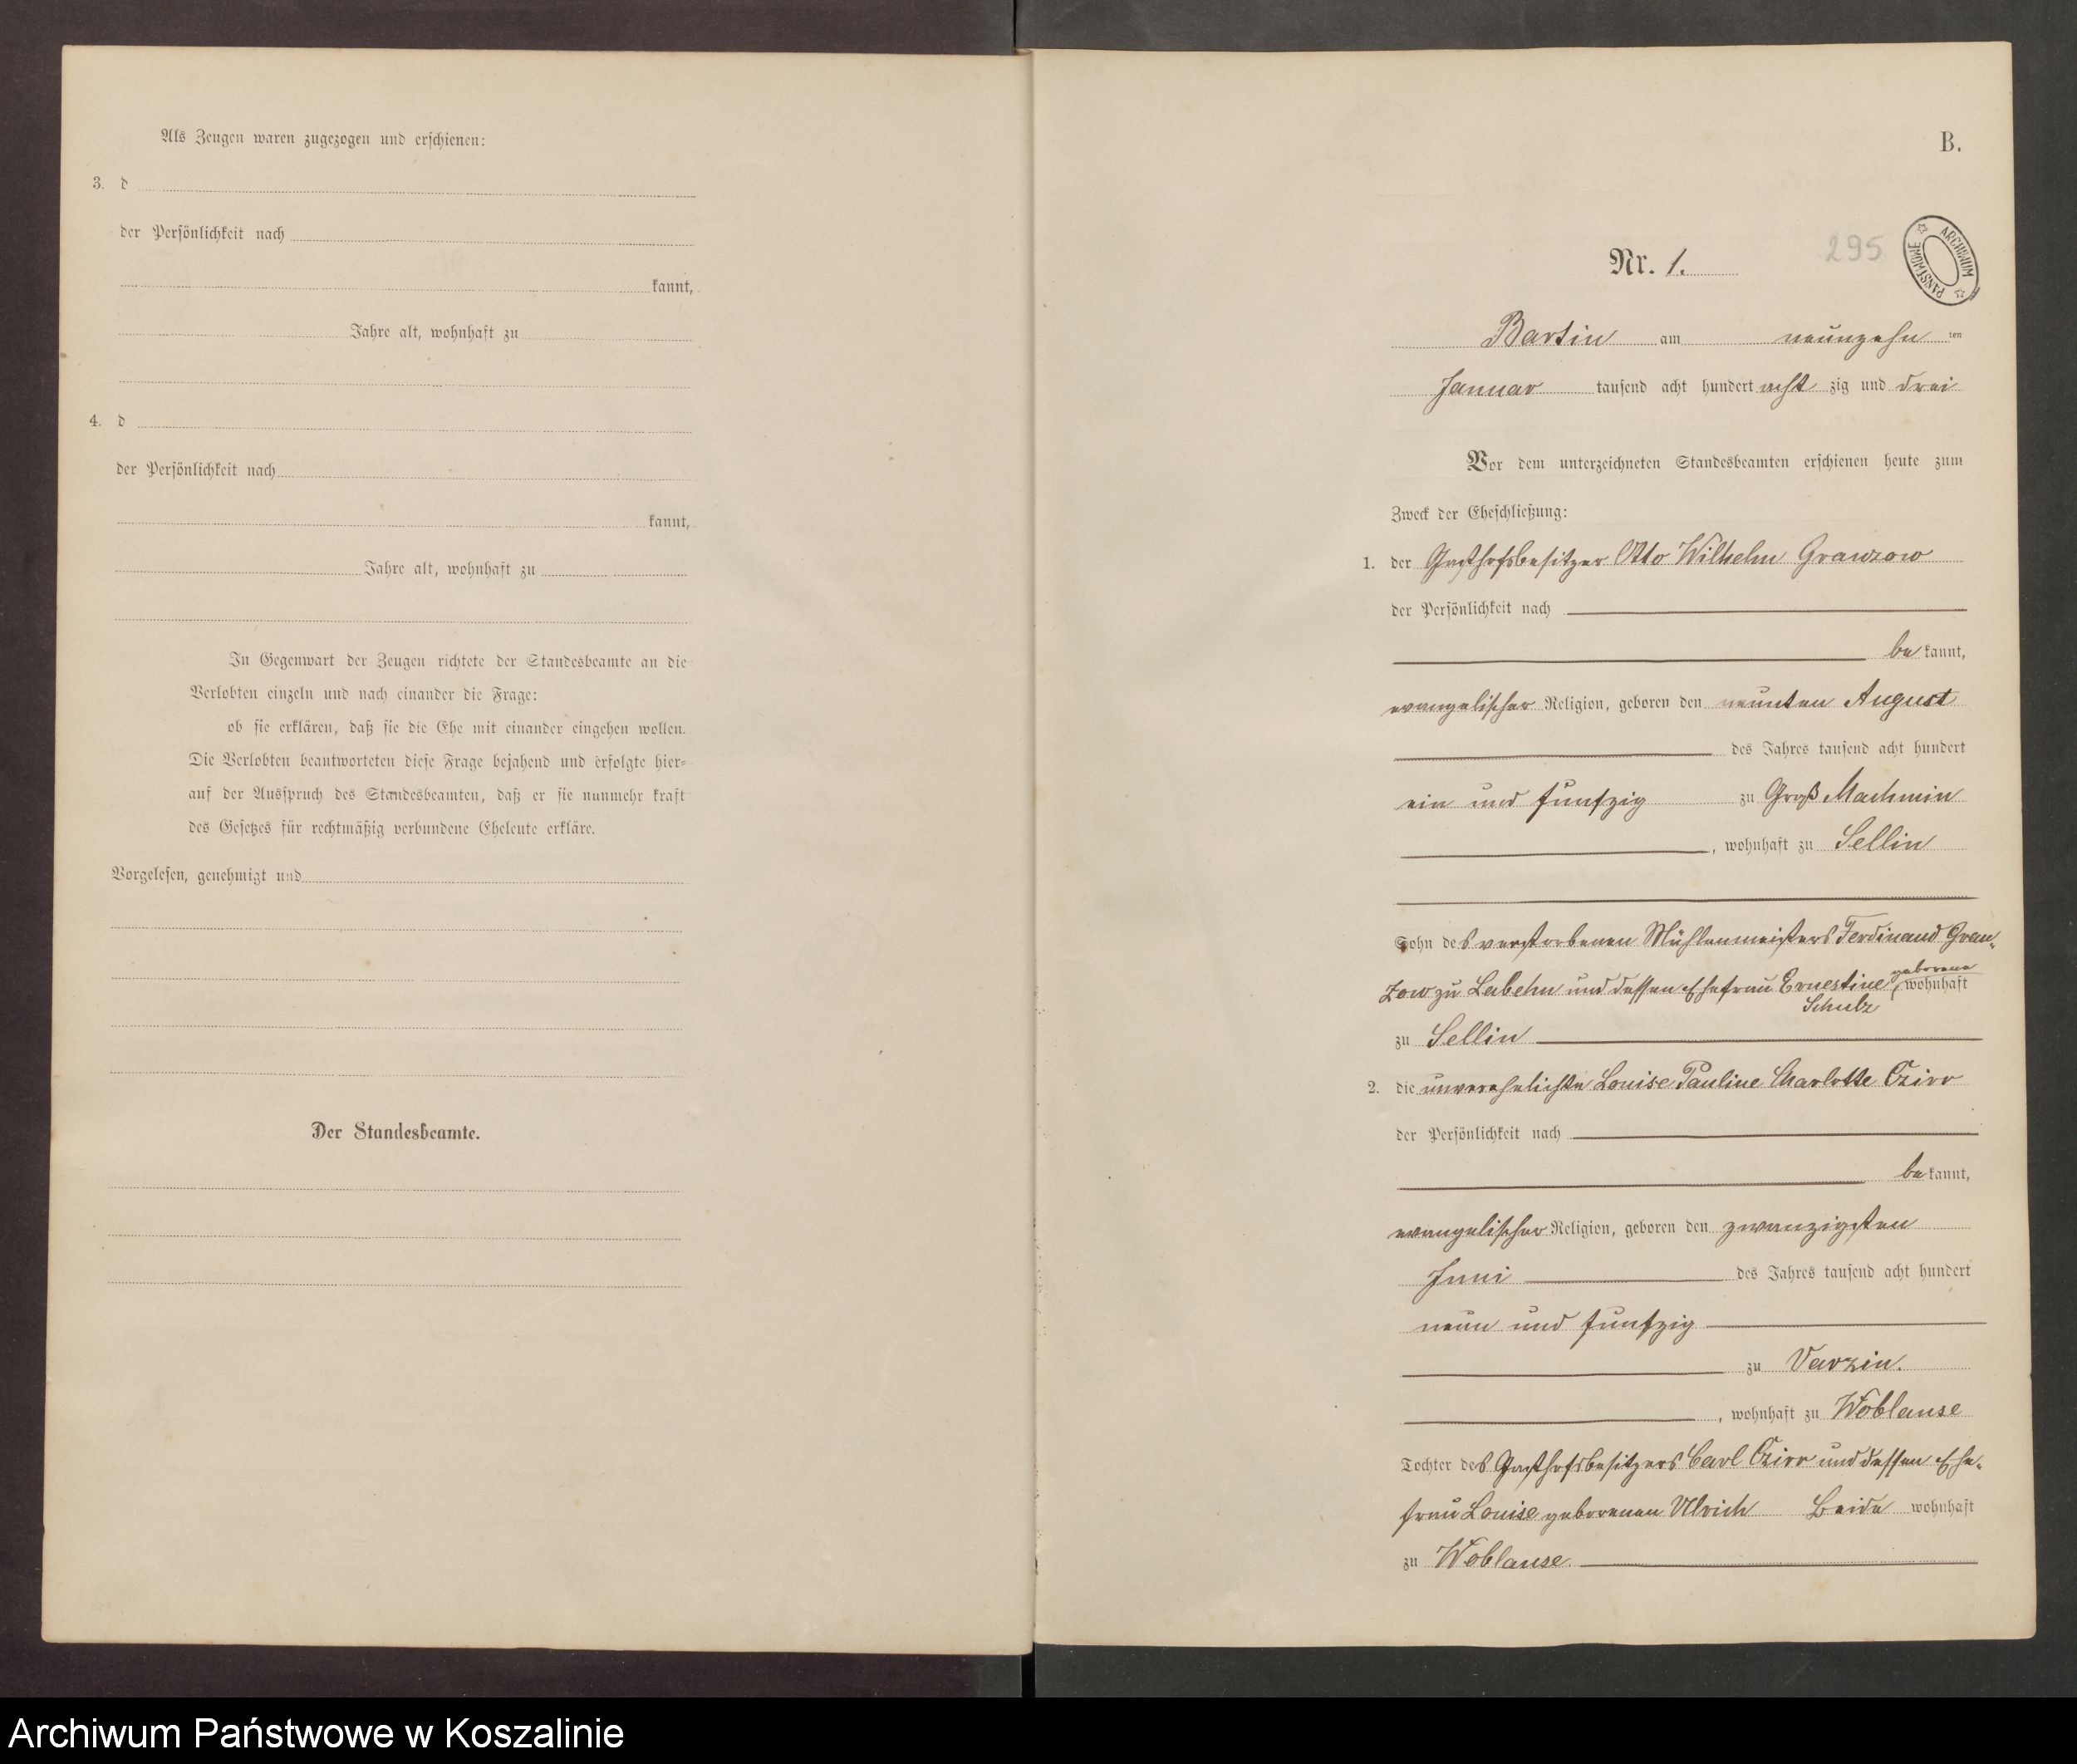 Als Zeugen waren zugezogen und erschienen:
3. d
der Persönlichkeit nach
kannt,
Jahre alt, wohnhaft zu
4. d
der Persönlichkeit nach
kannt,
Jahre alt, wohnhaft zu
In Gegenwart der Zeugen richtete der Standesbeamte an die
Verlobten einzeln und nach einander die Frage:
ob sie erklären, daß sie die Ehe mit einander eingehen wollen.
Die Verlobten beantworteten diese Frage bejahend und erfolgte hier-
auf der Ausspruch des Standesbeamten, daß er sie nunmehr kraft
des Gesetzes für rechtmäßig verbundene Eheleute erkläre.
Vorgelesen, genehmigt und
Der Standesbeamte.
B.
295
ARCHIWUM PAŃSTWOWE
Nr. 1.
Bartin am neunzehn ten
Januar tausend acht hundert acht zig und drei
Vor dem unterzeichneten Standesbeamten erschienen heute zum
Zweck der Eheschließung:
1. der Gasthofsbesitzer Otto Wilhelm Granzow
der Persönlichkeit nach
be kannt,
evangelischer Religion, geboren den neunten August
des Jahres tausend acht hundert
ein und funfzig zu Groß Machmin
, wohnhaft zu Sellin
Sohn des verstorbenen Mühlenmeisters Ferdinand Gran-
zow zu Labehn und dessen Ehefrau Ernestine geborene Schulz wohnhaft
zu Sellin
2. die unverehelichte Louise Pauline Charlotte Czirr
der Persönlichkeit nach
be kannt,
evangelischer Religion, geboren den zwanzigsten
Juni des Jahres tausend acht hundert
neun und funfzig
zu Varzin.
, wohnhaft zu Woblanse
Tochter des Gasthofsbesitzers Carl Czirr und dessen Ehe-
frau Louise geborenen Ulrich Beide wohnhaft
zu Woblanse
Archiwum Państwowe w Koszalinie